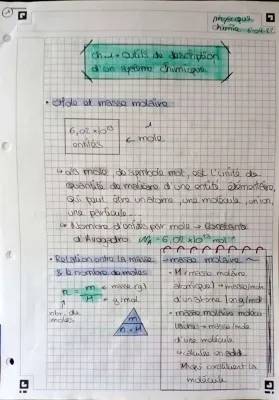 physique
chimie
ch 1 = Outils de description
d'un système chimique
• Mole et masse molaire
6,02 x 10²³
entités
← 1 mole
↳ La mole de symbole mol, est l'unité de
quantité de matière d'une entité élémentaire,
qui peut être un atome, une molécule, un ion,
une particule ...
↳ Nombre d'entité par mole → Constante
d'Avogadro NA = 6,02 x 10²³ mol⁻¹
• Relation entre la masse
& le nombre de moles
n = m ← masse (g)
M ← g/mol
nbr. de
moles
m
n × M
masse molaire
• M: masse molaire
atomique → masse/mole
d'un atome (g/mol)
• masse molaire molécu
laire → masse/mole
d'une molécule
→ calculée en add.
constituent la
molécule